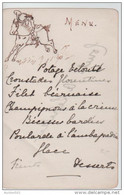 Menu
Potage Velouté
Croustades Florentines
Filet
Champignons à la crème
Bécasses bardées
Poularde à l'ambassadrice
Glace
Fruits
Desserts